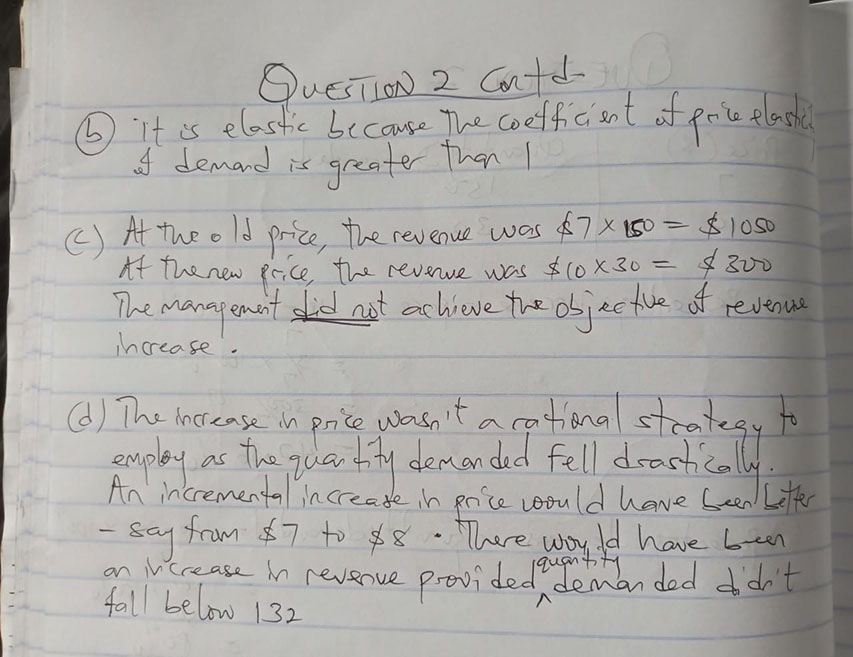 QUESTION 2 Contd-
(b) it is elastic because the coefficient of price elastici
of demand is greater than 1
(c) At the old price, the revenue was $7 x 150 = $1050
At the new price, the revenue was $10 x 30 = $300
The management did not achieve the objective of revenue
increase.
(d) The increase in price wasn't a rational strategy to
employ as the quantity demanded fell drastically.
An incremental increase in price would have been better
- say from $7 to $8. There would have been
an increase in revenue provided quantity demanded didn't
fall below 132